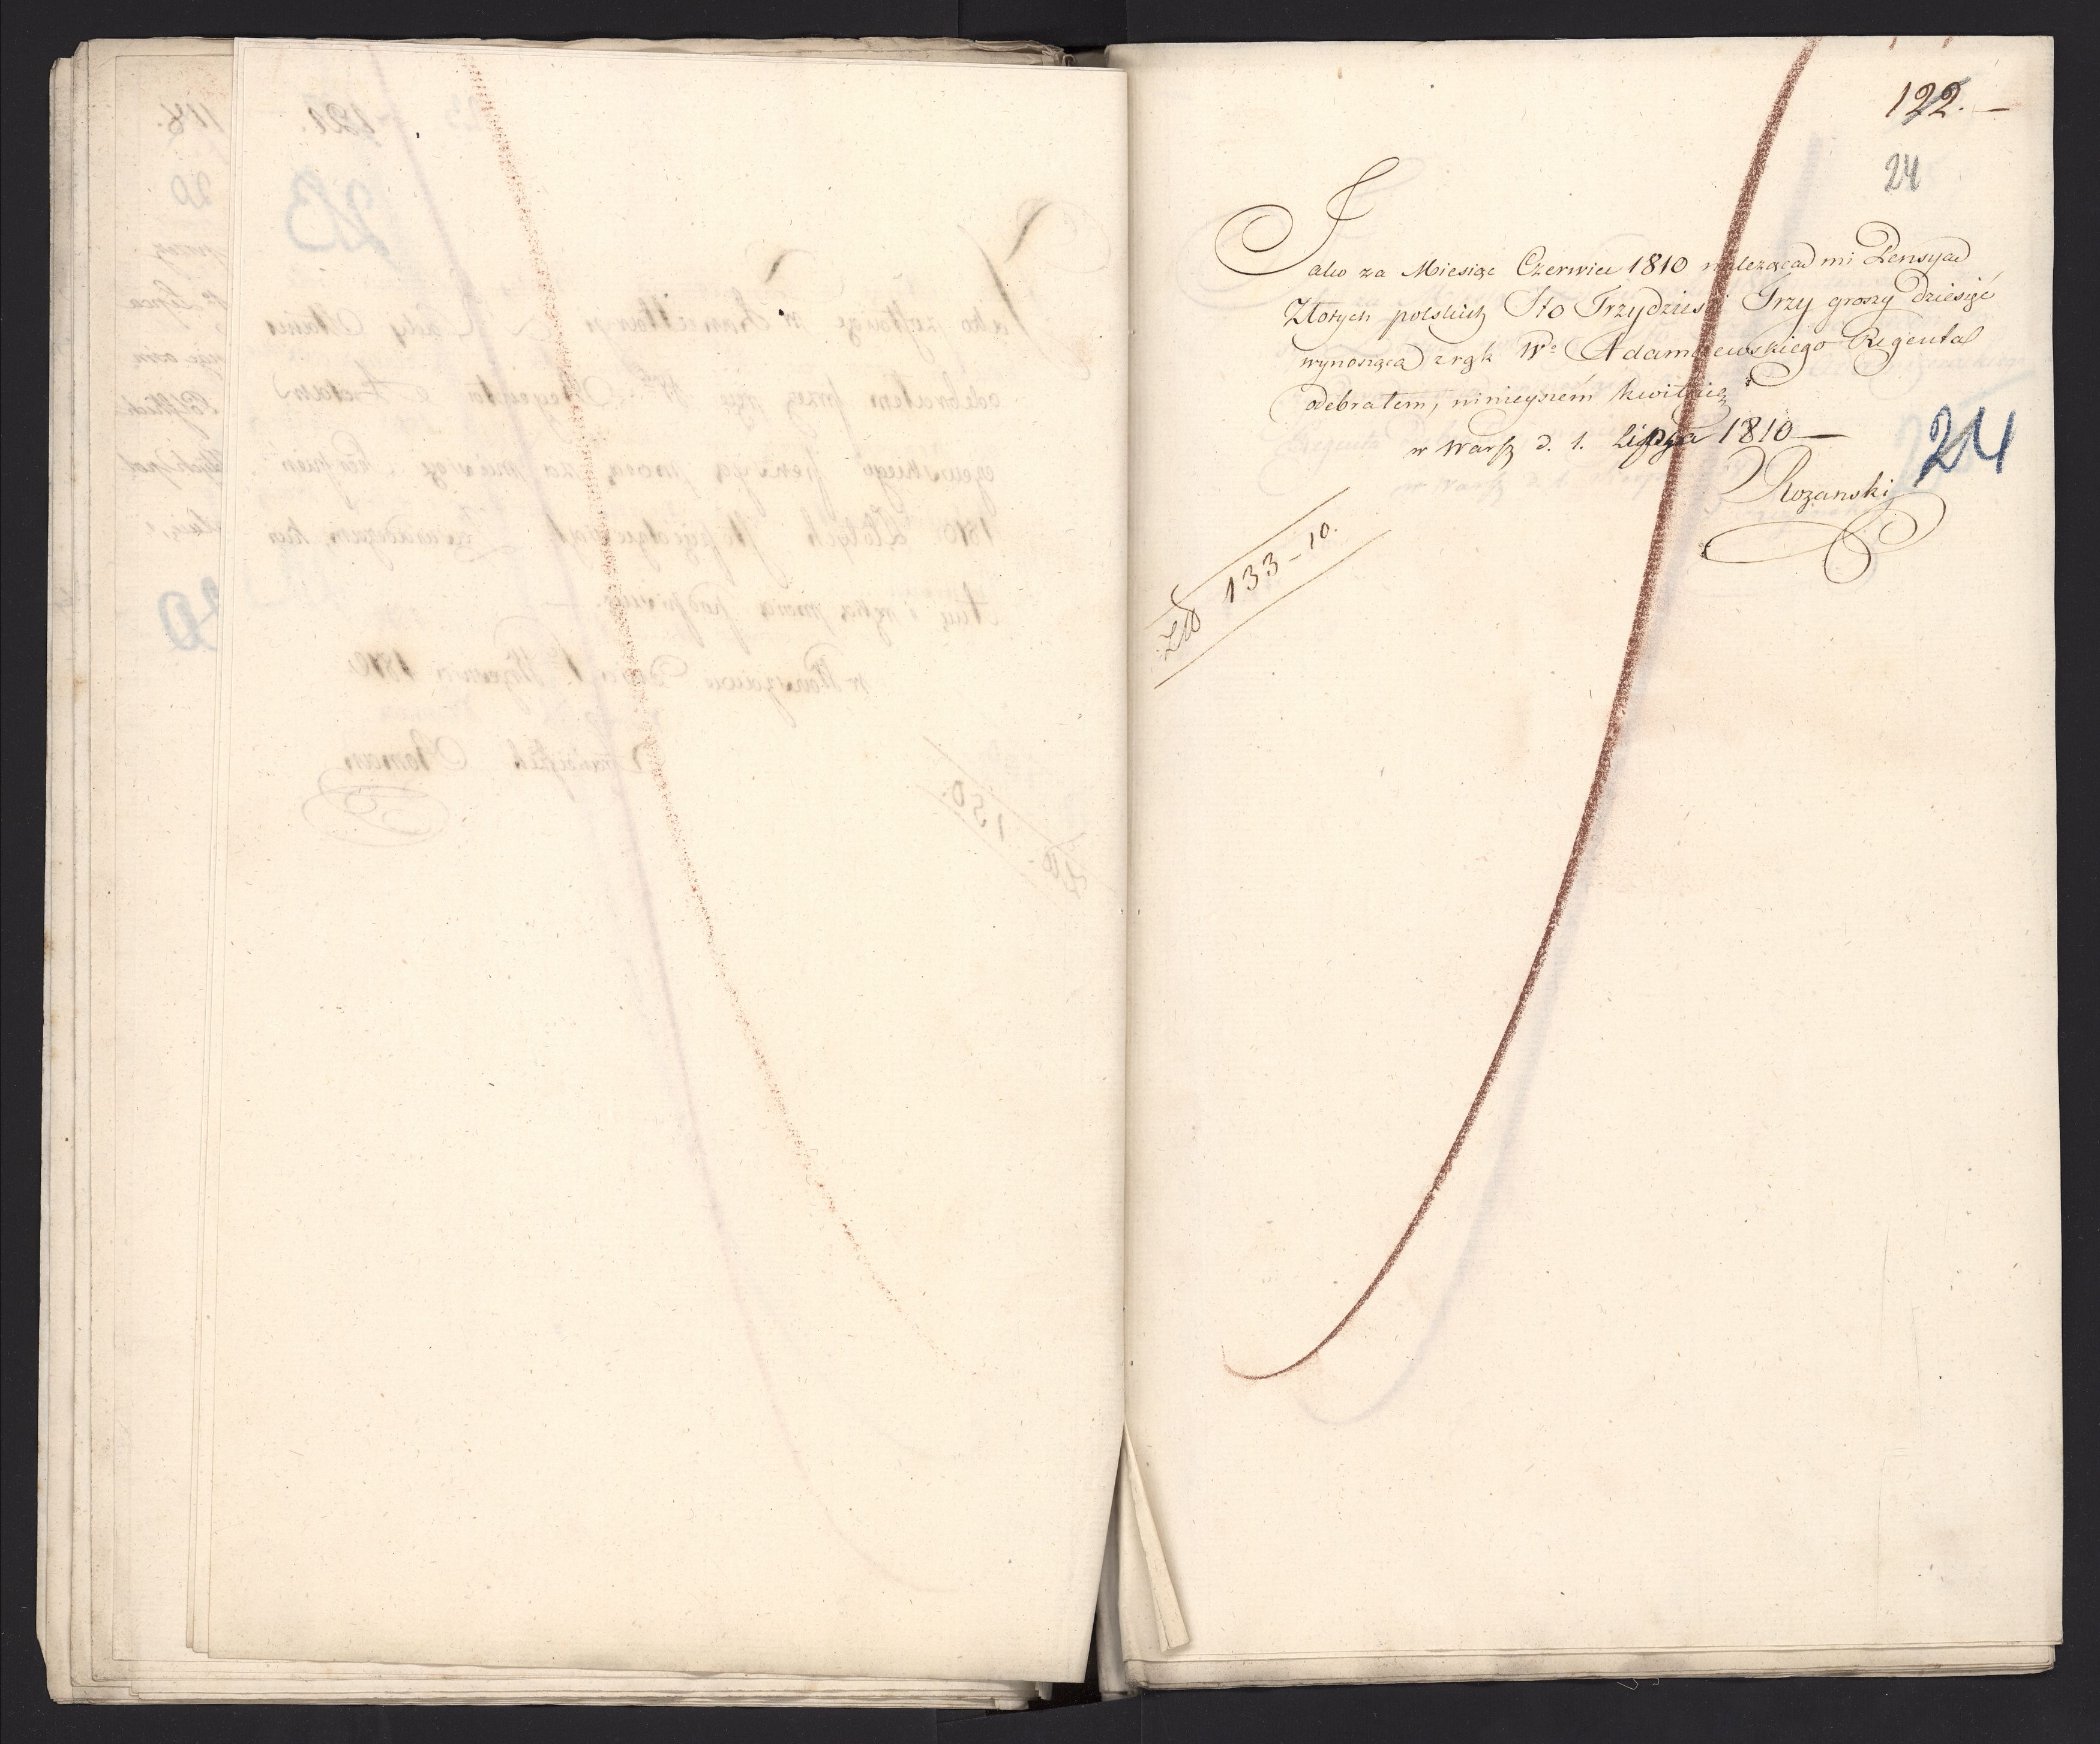 122. —
24
Jako za Miesiąc Czerwiec 1810 należąca mi Pensya
Złotych polskich Sto Trzydzieści Trzy groszy dziesięć
wynosząca z rąk W° Adamczewskiego Regenta
odebrałem, ninieyszem kwituię
w Warsz d. 1. Lipca 1810 —
24
Rozanski
Złp 133 – 10.